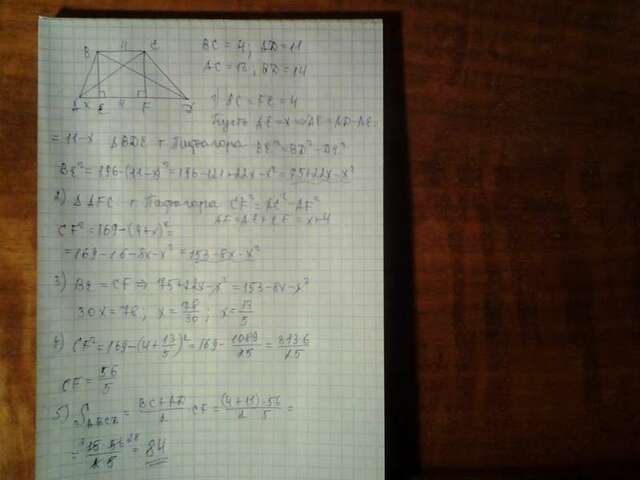 B 4 C
A x E 4 F D
BC = 4; AD = 11
AC = 13; BD = 14
1) BC = EF = 4
Пусть AE = x ⇒ DE = AD - AE =
= 11 - x ΔBDE т. Пифагора BE² = BD² - DE²
BE² = 196 - (11 - x)² = 196 - 121 + 22x - x² = 75 + 22x - x²
2) ΔAFC т. Пифагора CF² = AC² - AF²
AF = AE + EF = x + 4
CF² = 169 - (4 + x)² =
= 169 - 16 - 8x - x² = 153 - 8x - x²
3) BE = CF ⇒ 75 + 22x - x² = 153 - 8x - x²
30x = 78; x = 78/30; x = 13/5
4) CF² = 169 - (4 + 13/5)² = 169 - 1089/25 = 3136/25
CF = 56/5
5) S ABCD = (BC + AD)/2 · CF = (4 + 11) · 56 / 2 · 5 =
= 15 · 56 / 2 · 5 = 84